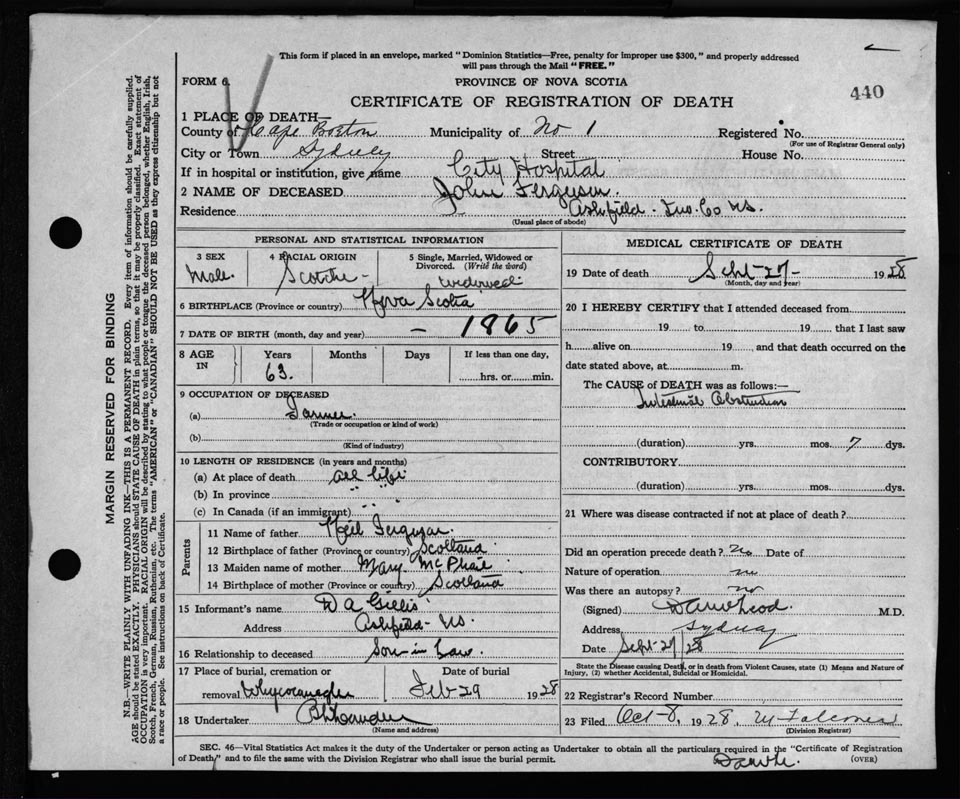 This form if placed in an envelope, marked "Dominion Statistics—Free, penalty for improper use $300," and properly addressed
will pass through the Mail "FREE."
FORM 6 PROVINCE OF NOVA SCOTIA
440
CERTIFICATE OF REGISTRATION OF DEATH
1 PLACE OF DEATH—
County of Cape Breton Municipality of No 1 Registered No.
(For use of Registrar General only)
City or Town Sydney Street House No.
If in hospital or institution, give name City Hospital
2 NAME OF DECEASED John Ferguson.
Residence Ashfield. Inv. Co NS.
(Usual place of abode)
PERSONAL AND STATISTICAL INFORMATION
3 SEX 4 RACIAL ORIGIN 5 Single, Married, Widowed or Divorced. (Write the word)
Male. Scotch widowed
6 BIRTHPLACE (Province or country) Nova Scotia
7 DATE OF BIRTH (month, day and year) — 1865
8 AGE IN Years Months Days If less than one day,
63. hrs. or min.
9 OCCUPATION OF DECEASED
(a) Farmer.
(Trade or occupation or kind of work)
(b)
(Kind of industry)
10 LENGTH OF RESIDENCE (in years and months)
(a) At place of death all life
(b) In province " "
(c) In Canada (if an immigrant) " "
Parents
11 Name of father Neil Ferguson.
12 Birthplace of father (Province or country) Scotland
13 Maiden name of mother Mary McPhail
14 Birthplace of mother (Province or country) Scotland
15 Informant's name D A Gillis
Address Ashfield- NS.
16 Relationship to deceased Son in Law
17 Place of burial, cremation or Date of burial
removal Whycocomagh Feb 29 1928
18 Undertaker
(Name and address)
MEDICAL CERTIFICATE OF DEATH
19 Date of death Sept-27- 1928
(Month, day and year)
20 I HEREBY CERTIFY that I attended deceased from
19 to 19 that I last saw
h alive on 19 and that death occurred on the
date stated above, at m.
The CAUSE of DEATH was as follows:—
Intestinal Obstruction
(duration) yrs. mos. 7 dys.
CONTRIBUTORY
(duration) yrs. mos. dys.
21 Where was disease contracted if not at place of death?
Did an operation precede death? no Date of
Nature of operation
Was there an autopsy? no
(Signed) M.D.
Address Sydney
Date Sept-27/28
State the Disease causing Death, or in death from Violent Causes, state (1) Means and Nature of
Injury, (2) whether Accidental, Suicidal or Homicidal.
22 Registrar's Record Number
23 Filed Oct-8, 1928,
(Division Registrar)
SEC. 46—Vital Statistics Act makes it the duty of the Undertaker or person acting as Undertaker to obtain all the particulars required in the "Certificate of Registration
of Death," and to file the same with the Division Registrar who shall issue the burial permit.
(OVER)
MARGIN RESERVED FOR BINDING
N.B.—WRITE PLAINLY WITH UNFADING INK—THIS IS A PERMANENT RECORD. Every item of information should be carefully supplied.
AGE should be stated EXACTLY. PHYSICIANS should STATE CAUSE OF DEATH in plain terms, so that it may be properly classified. Exact statement of
OCCUPATION is very important. RACIAL ORIGIN will be described by stating to what people or tongue the deceased person belonged, whether English, Irish,
Scotch, French, German, Russian, Ruthenian, etc. The terms "AMERICAN" or "CANADIAN" SHOULD NOT BE USED as they express citizenship but not
a race or people. See instructions on back of Certificate.